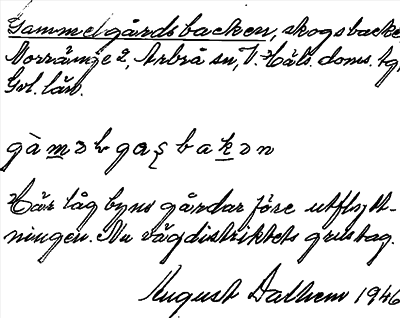 Gammelgårdsbacken, skogsbacke
Norränge 2, Arbrå sn, V. Häls. doms. tg,
Gvl. län.
gàməlgaʂbakən
Här låg byns gårdar före utflytt-
ningen. Nu vägdistriktets grustag.
August Dalhem 1946